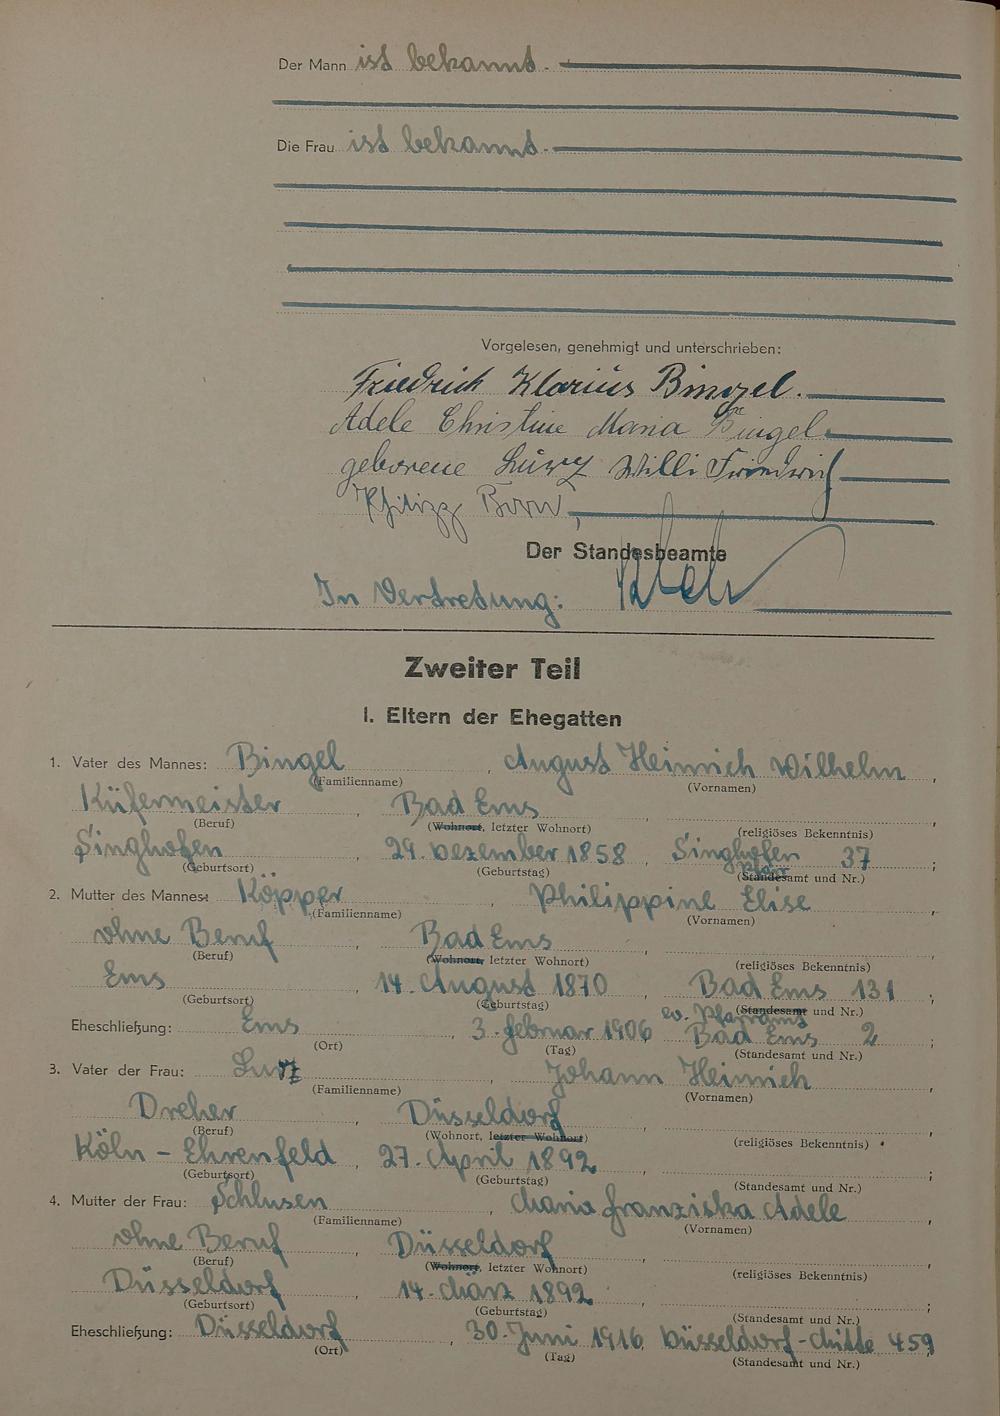 Der Mann ist bekannt.
Die Frau ist bekannt.
Vorgelesen, genehmigt und unterschrieben:
Friedrich Klarius Bingel.
Adele Christine Maria Bingel
geborene Lutz Willi Friedrich
Philipp Born,
Der Standesbeamte
In Vertretung:
Zweiter Teil
I. Eltern der Ehegatten
1. Vater des Mannes: Bingel, August Heinrich Wilhelm,
(Familienname) (Vornamen)
Küfermeister, Bad Ems,
(Beruf) (Wohnort, letzter Wohnort) (religiöses Bekenntnis)
Singhofen, 29. Dezember 1858, Singhofen 37;
(Geburtsort) (Geburtstag) Pfarr (Standesamt und Nr.)
2. Mutter des Mannes: Köpper, Philippine Elise,
(Familienname) (Vornamen)
ohne Beruf, Bad Ems,
(Beruf) (Wohnort, letzter Wohnort) (religiöses Bekenntnis)
Ems, 14. August 1870, Bad Ems 131;
(Geburtsort) (Geburtstag) (Standesamt und Nr.)
ev. Pfarramt
Eheschließung: Ems, 3. Februar 1906 Bad Ems 2;
(Ort) (Tag) (Standesamt und Nr.)
3. Vater der Frau: Lutz, Johann Heinrich,
(Familienname) (Vornamen)
Dreher, Düsseldorf,
(Beruf) (Wohnort, letzter Wohnort) (religiöses Bekenntnis)
Köln - Ehrenfeld, 27. April 1892,;
(Geburtsort) (Geburtstag) (Standesamt und Nr.)
4. Mutter der Frau: Schlusen, Maria Franziska Adele,
(Familienname) (Vornamen)
ohne Beruf, Düsseldorf,
(Beruf) (Wohnort, letzter Wohnort) (religiöses Bekenntnis)
Düsseldorf, 14. März 1892,;
(Geburtsort) (Geburtstag) (Standesamt und Nr.)
Eheschließung: Düsseldorf, 30. Juni 1916, Düsseldorf-Mitte 459
(Ort) (Tag) (Standesamt und Nr.)